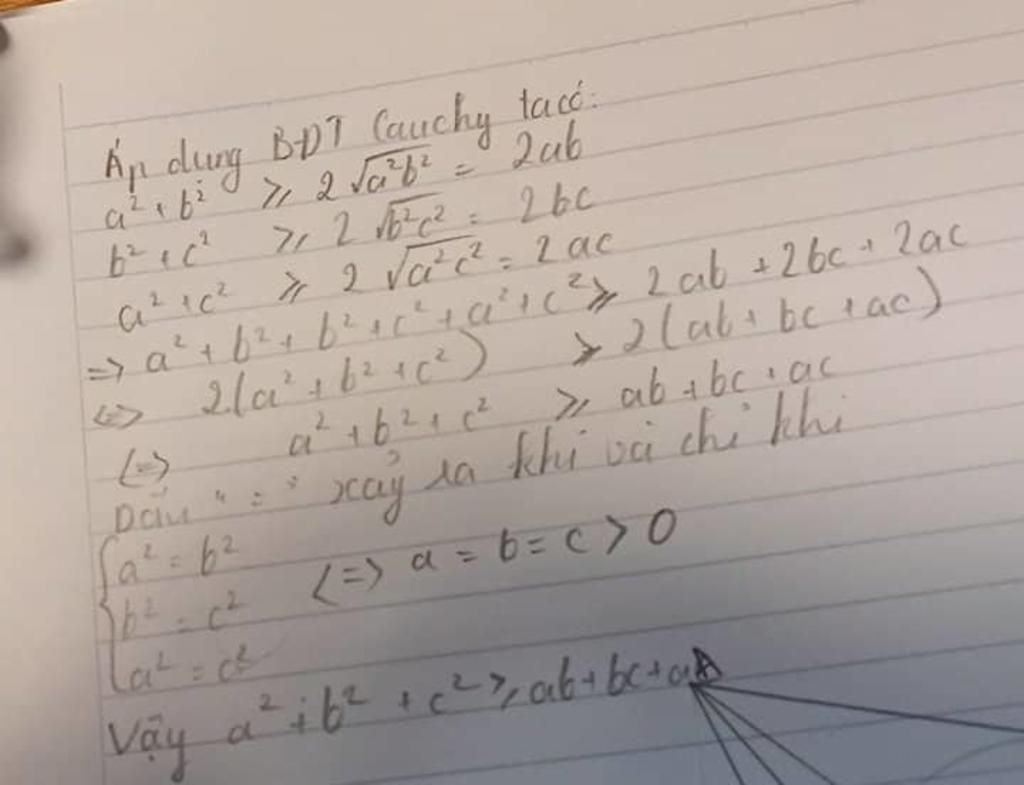 Áp dụng BĐT Cauchy ta có:
a² + b² ≥ 2√a²b² = 2ab
b² + c² ≥ 2√b²c² = 2bc
a² + c² ≥ 2√a²c² = 2ac
=> a² + b² + b² + c² + a² + c² ≥ 2ab + 2bc + 2ac
<=> 2(a² + b² + c²) ≥ 2(ab + bc + ac)
<=> a² + b² + c² ≥ ab + bc + ac
Dấu "=" xảy ra khi và chỉ khi
{ a² = b²
b² = c² <=> a = b = c > 0
a² = c²
Vậy a² + b² + c² ≥ ab + bc +